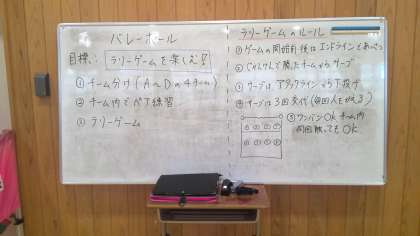 バレーボール
目標: ラリーゲームを楽しむ!!
① チーム分け(A〜Dの4チーム)
② チーム内でペア練習
③ ラリーゲーム
ラリーゲームのルール
① ゲームの開始前後はエンドラインであいさつ
② じゃんけんで勝ったチームからサーブ
③ サーブはアタックラインから下投げ
④ サーブは3回交代(毎回人をかえる)
⑤ ワンバンOK チーム内
何回触ってもOK